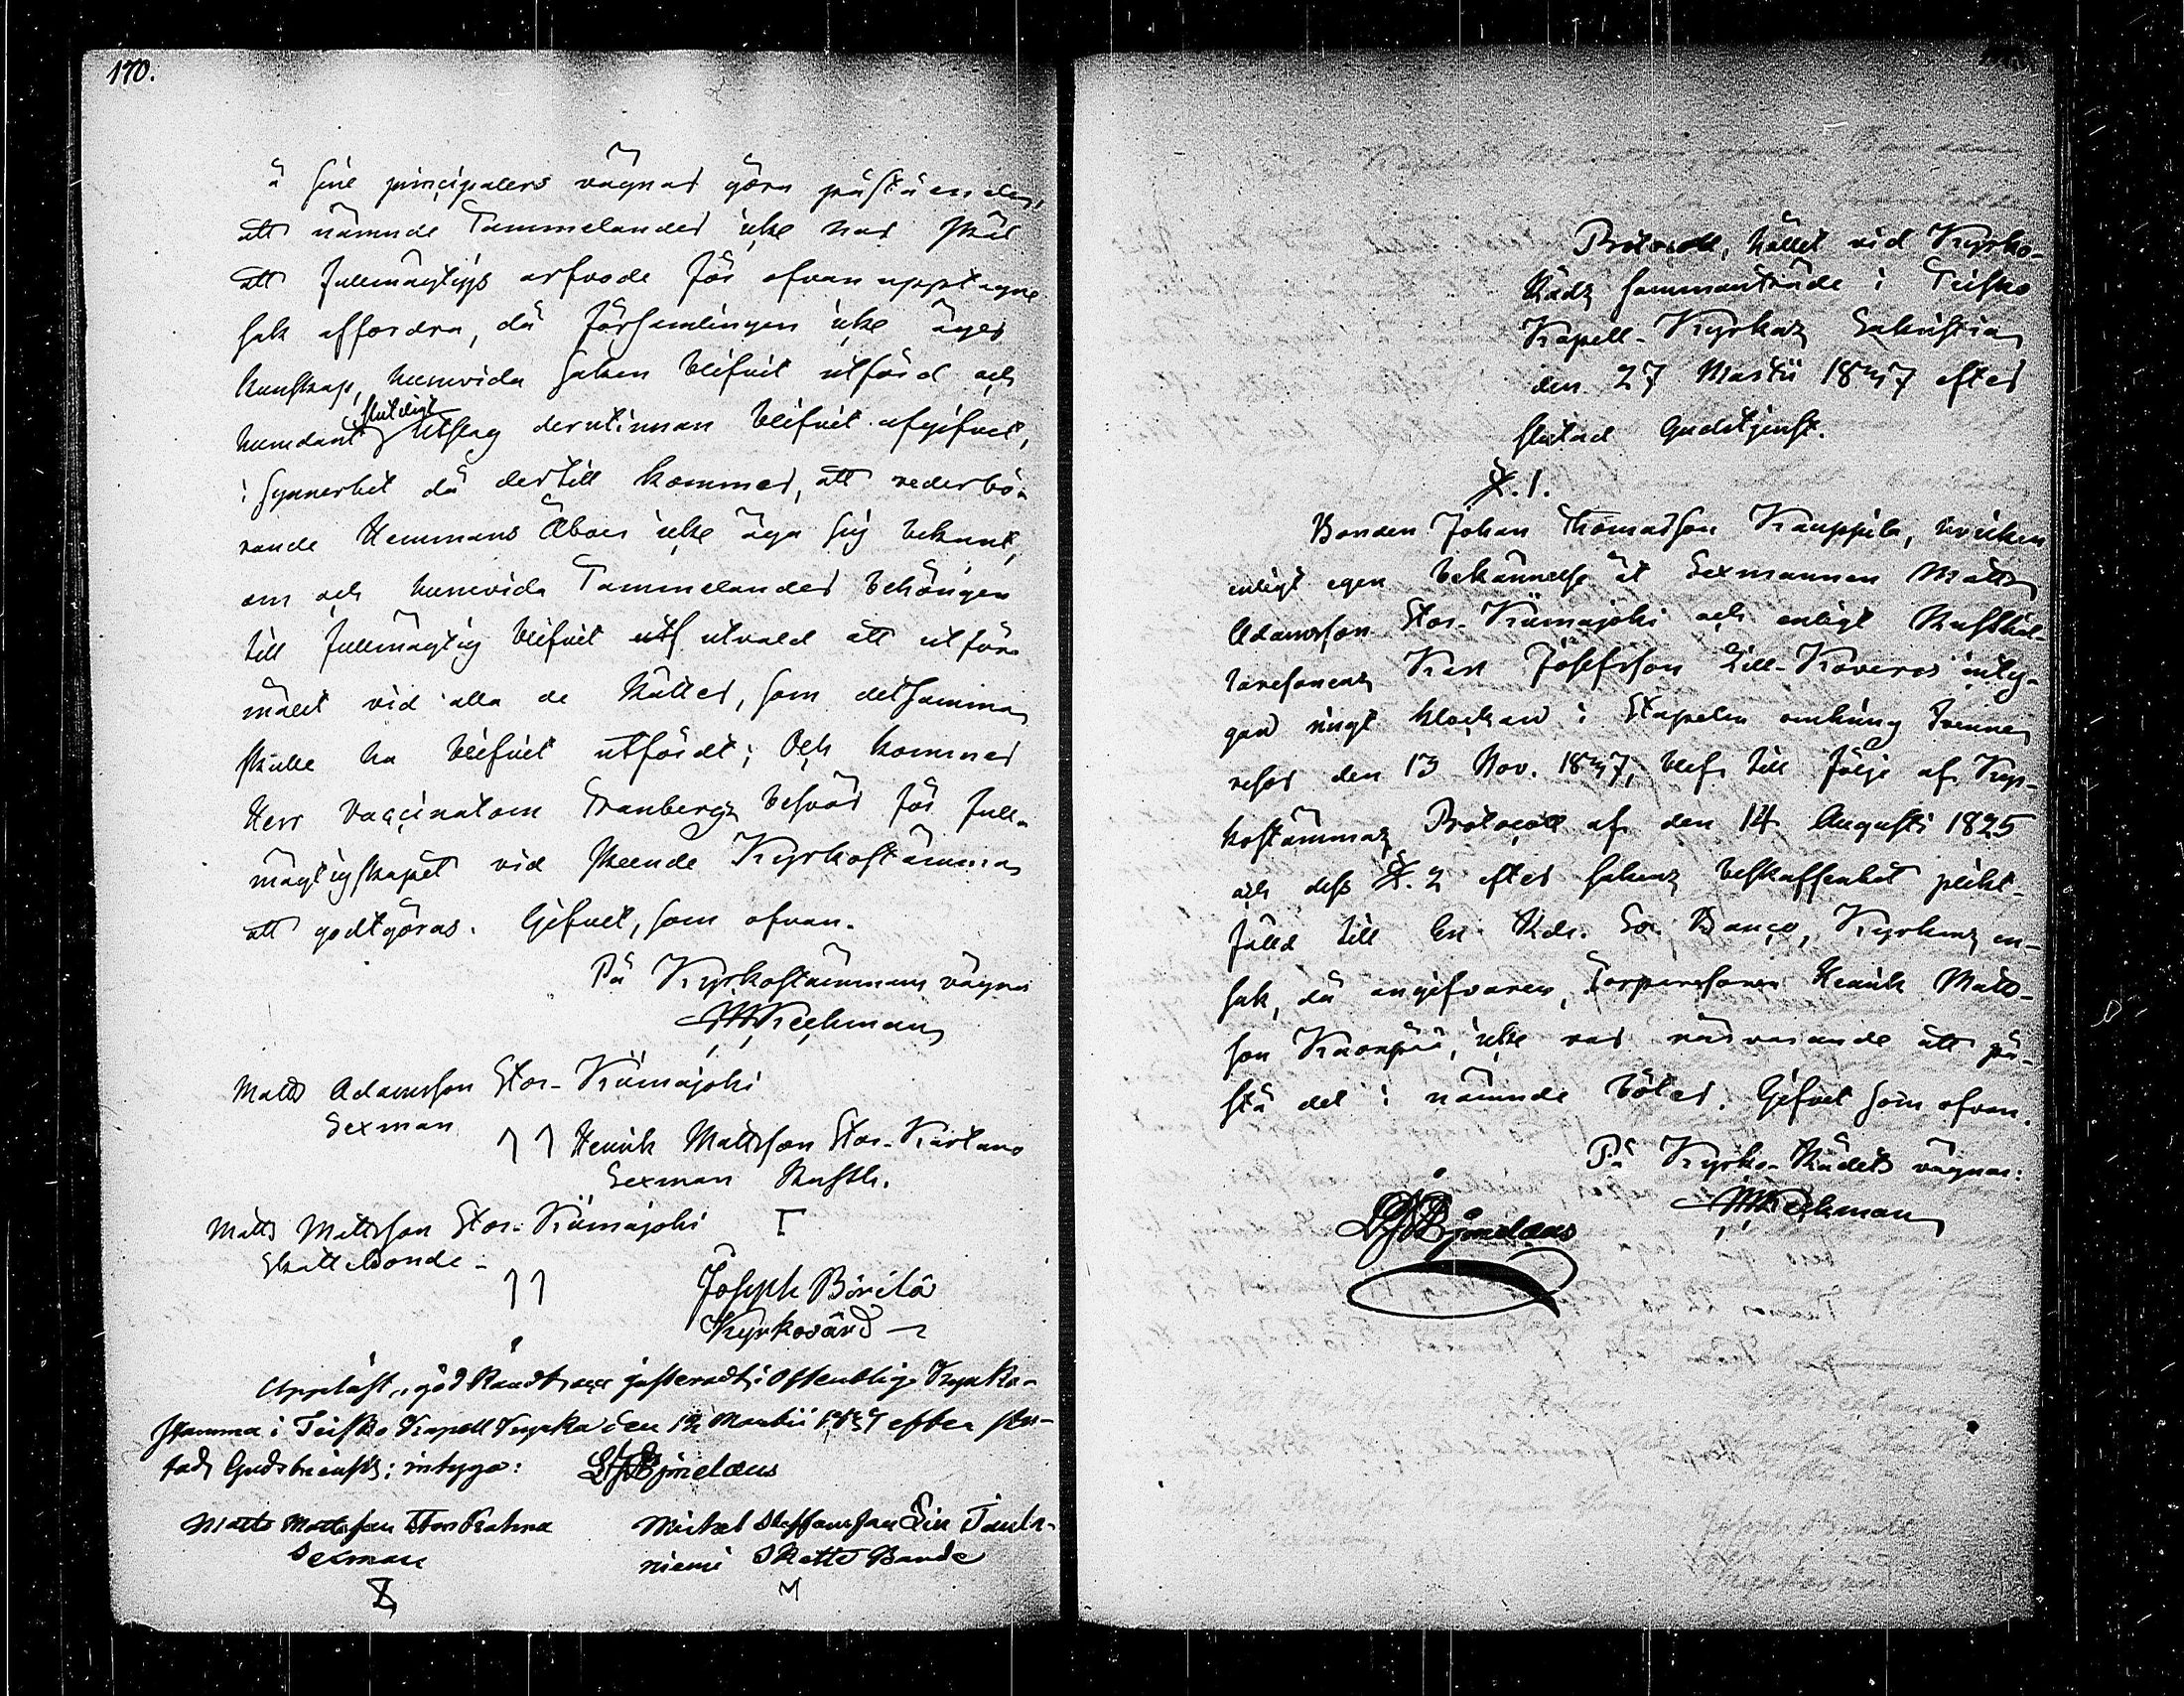 170.
å sine principalers vägnar göra påståenden,
att nämnde Tammelander icke har skäl
att fullmägtigs arfvode för ofvan upptagne
sak affordra, då Församlingen icke äger
kunskap, huruvida saken blifvit utförd och
hurudant slutligt Utslag derutinnan blifvit afgifvet,
i synnerhet då dertill kommer, att vederbö-
rande Hemmans Åboer icke äga sig bekant,
om och huruvida Tammelander behörigen
till fullmägtig blifvit utf utvald att utföra
målet vid alla de Rätter, som detsamma
skulle ha blifvit utfördt; Och kommer
Herr Vaccinatorn Granbergs besvär för full-
mägtigskapet vid skeende Kyrkostämma
att godtgöras. Gifvet, som ofvan.
På Kyrkostämmans vägnar
Matts Adamsson Stor-Kiimajoki
Sexman
Henrik Mattsson Stor-Kartano
Sexman Rusth.
Matts Mattsson Stor-Kiimajoki
Skattebonde
Joseph Böritå
Kyrkovärd
Uppläst, godkändt och justeradt i Offentlig Kyrko-
stämma i Teisko Kapell Kyrka den 12 Martii 1837 efter slu-
tad Gudstienst; intyga:
Matts Mattsson Stor
Sexman
Michel Staffansson Lill Taula-
niemi Skatte Bonde
Protocoll, hållet vid Kyrko-
Råds sammanträde i Teisko
Kapell-Kyrkas Sakristia
den 27 Martii 1837 efter
slutad Gudstjenst.
§. 1.
Bonden Johan Thomasson Kauppila, hvilken
enligt egen bekännelse åt Sexmannen Matts
Adamsson Stor-Kiimajoki och enligt Rusthål-
laresonens Karl Josefsson Lill-Koveros inty-
gan ringt klockan i Stapeln omkring trenne
resor den 13 Nov. 1837, blef till följe af Kyr-
kostämmas Protocoll af den 14 Augusti 1825
och dess §. 2 efter sakens beskaffenhet plikt-
fälld till En Rdr. Sv. Banco, Kyrkans en-
sak, då angifvaren, Torparesonen Henrik Matts-
son icke var närvarande att på-
stå del i nämnde böter. Gifvet som ofvan.
På Kyrko-Rådets vägnar: